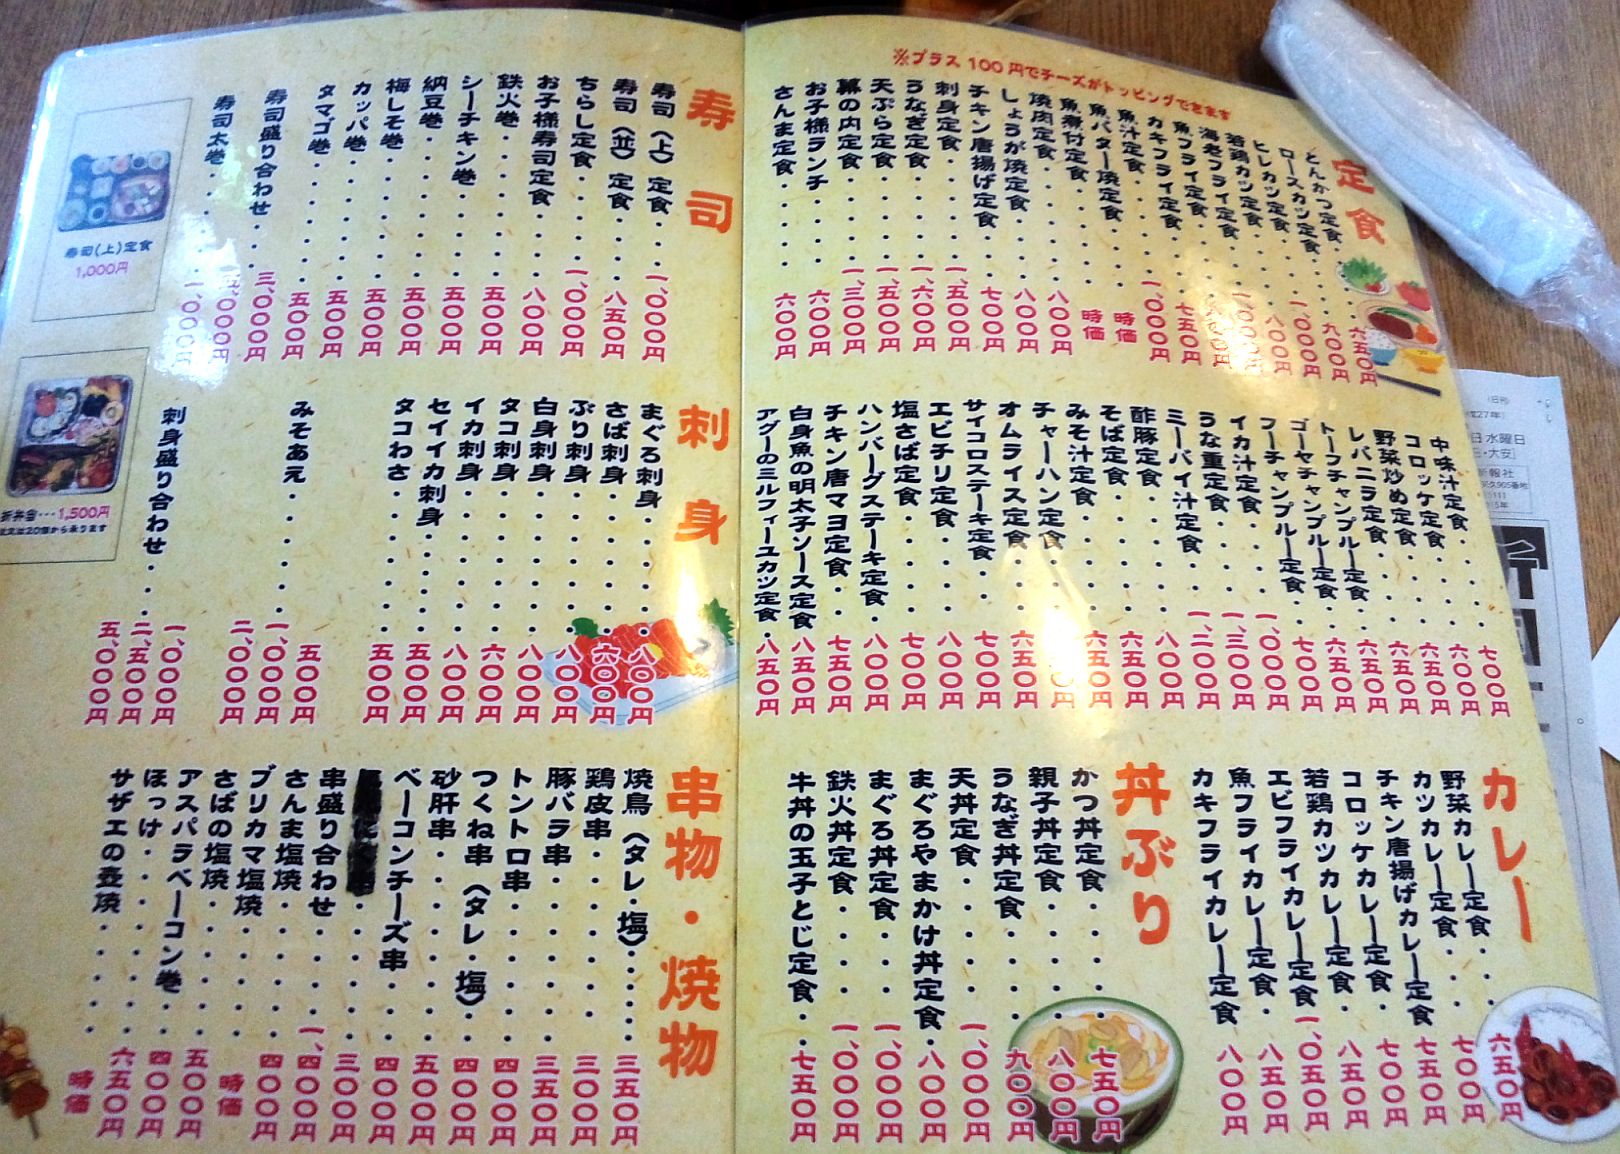 ※プラス100円でチーズがトッピングできます
定食
とんかつ定食・・・六五〇円
ロースカツ定食・・・九〇〇円
ヒレカツ定食・・・一、〇〇〇円
若鶏カツ定食・・・八〇〇円
海老フライ定食・・・一、〇〇〇円
魚フライ定食
カキフライ定食・・・七五〇円
魚汁定食・・・一、〇〇〇円
魚バター焼定食・・・時価
魚煮付定食・・・時価
焼肉定食・・・八〇〇円
しょうが焼定食・・・八〇〇円
チキン唐揚げ定食・・・七〇〇円
刺身定食・・・一、五〇〇円
うなぎ定食・・・一、六〇〇円
天ぷら定食・・・一、五〇〇円
幕の内定食・・・一、三〇〇円
お子様ランチ・・・六〇〇円
さんま定食・・・六〇〇円
中味汁定食・・・七〇〇円
コロッケ定食・・・六〇〇円
野菜炒め定食・・・六五〇円
レバニラ定食・・・六五〇円
トーフチャンプルー定食・六五〇円
ゴーヤチャンプルー定食・六五〇円
フーチャンプルー定食・・七〇〇円
イカ汁定食・・・一、〇〇〇円
うな重定食・・・一、三〇〇円
ミーバイ汁定食・・・一、二〇〇円
酢豚定食・・・八〇〇円
そば定食・・・六五〇円
みそ汁定食・・・六五〇円
チャーハン定食
オムライス定食・・・六五〇円
サイコロステーキ定食・・・七〇〇円
エビチリ定食・・・八〇〇円
塩さば定食・・・七〇〇円
ハンバーグステーキ定食・八〇〇円
チキン唐マヨ定食・・七五〇円
白身魚の明太子ソース定食 八五〇円
アグーのミルフィーユカツ定食・八五〇円
カレー
野菜カレー定食・・・六五〇円
カツカレー定食・・・七〇〇円
チキン唐揚げカレー定食 七五〇円
コロッケカレー定食・・七〇〇円
若鶏カツカレー定食・・八五〇円
エビフライカレー定食 一、〇五〇円
魚フライカレー定食・・八五〇円
カキフライカレー定食・八〇〇円
丼ぶり
かつ丼定食・・・七五〇円
親子丼定食・・・八〇〇円
うなぎ丼定食・・・九〇〇円
天丼定食・・・一、〇〇〇円
まぐろやまかけ丼定食・八〇〇円
まぐろ丼定食・・・一、〇〇〇円
鉄火丼定食・・・一、〇〇〇円
牛丼の玉子とじ定食・七五〇円
寿司
寿司（上）定食・・一、〇〇〇円
寿司（並）定食・・・八五〇円
ちらし定食・・・一、〇〇〇円
お子様寿司定食・・・八〇〇円
鉄火巻・・・五〇〇円
シーチキン巻・・・五〇〇円
納豆巻・・・五〇〇円
梅しそ巻・・・五〇〇円
カッパ巻・・・五〇〇円
タマゴ巻・・・五〇〇円
寿司盛り合わせ・・三、〇〇〇円
五、〇〇〇円
寿司太巻・・・一、〇〇〇円
寿司(上)定食
1,000円
1,500円
刺身
まぐろ刺身・・・八〇〇円
さば刺身・・・六〇〇円
ぶり刺身・・・八〇〇円
白身刺身・・・八〇〇円
タコ刺身・・・六〇〇円
イカ刺身・・・八〇〇円
セイイカ刺身・・・五〇〇円
タコわさ・・・五〇〇円
みそあえ・・・五〇〇円
一、〇〇〇円
二、〇〇〇円
刺身盛り合わせ・・一、〇〇〇円
二、五〇〇円
五、〇〇〇円
串物・焼物
焼鳥（タレ・塩）・・・三五〇円
鶏皮串・・・三〇〇円
豚バラ串・・・三五〇円
トントロ串・・・四〇〇円
つくね串（タレ・塩）・・四〇〇円
砂肝串・・・五〇〇円
ベーコンチーズ串・・・四〇〇円
三〇〇円
串盛り合わせ・・・一、四〇〇円
さんま塩焼・・・四〇〇円
ブリカマ塩焼・・・時価
さばの塩焼・・・五〇〇円
アスパラベーコン巻・・四〇〇円
ほっけ・・・六五〇円
サザエの壺焼・・・時価